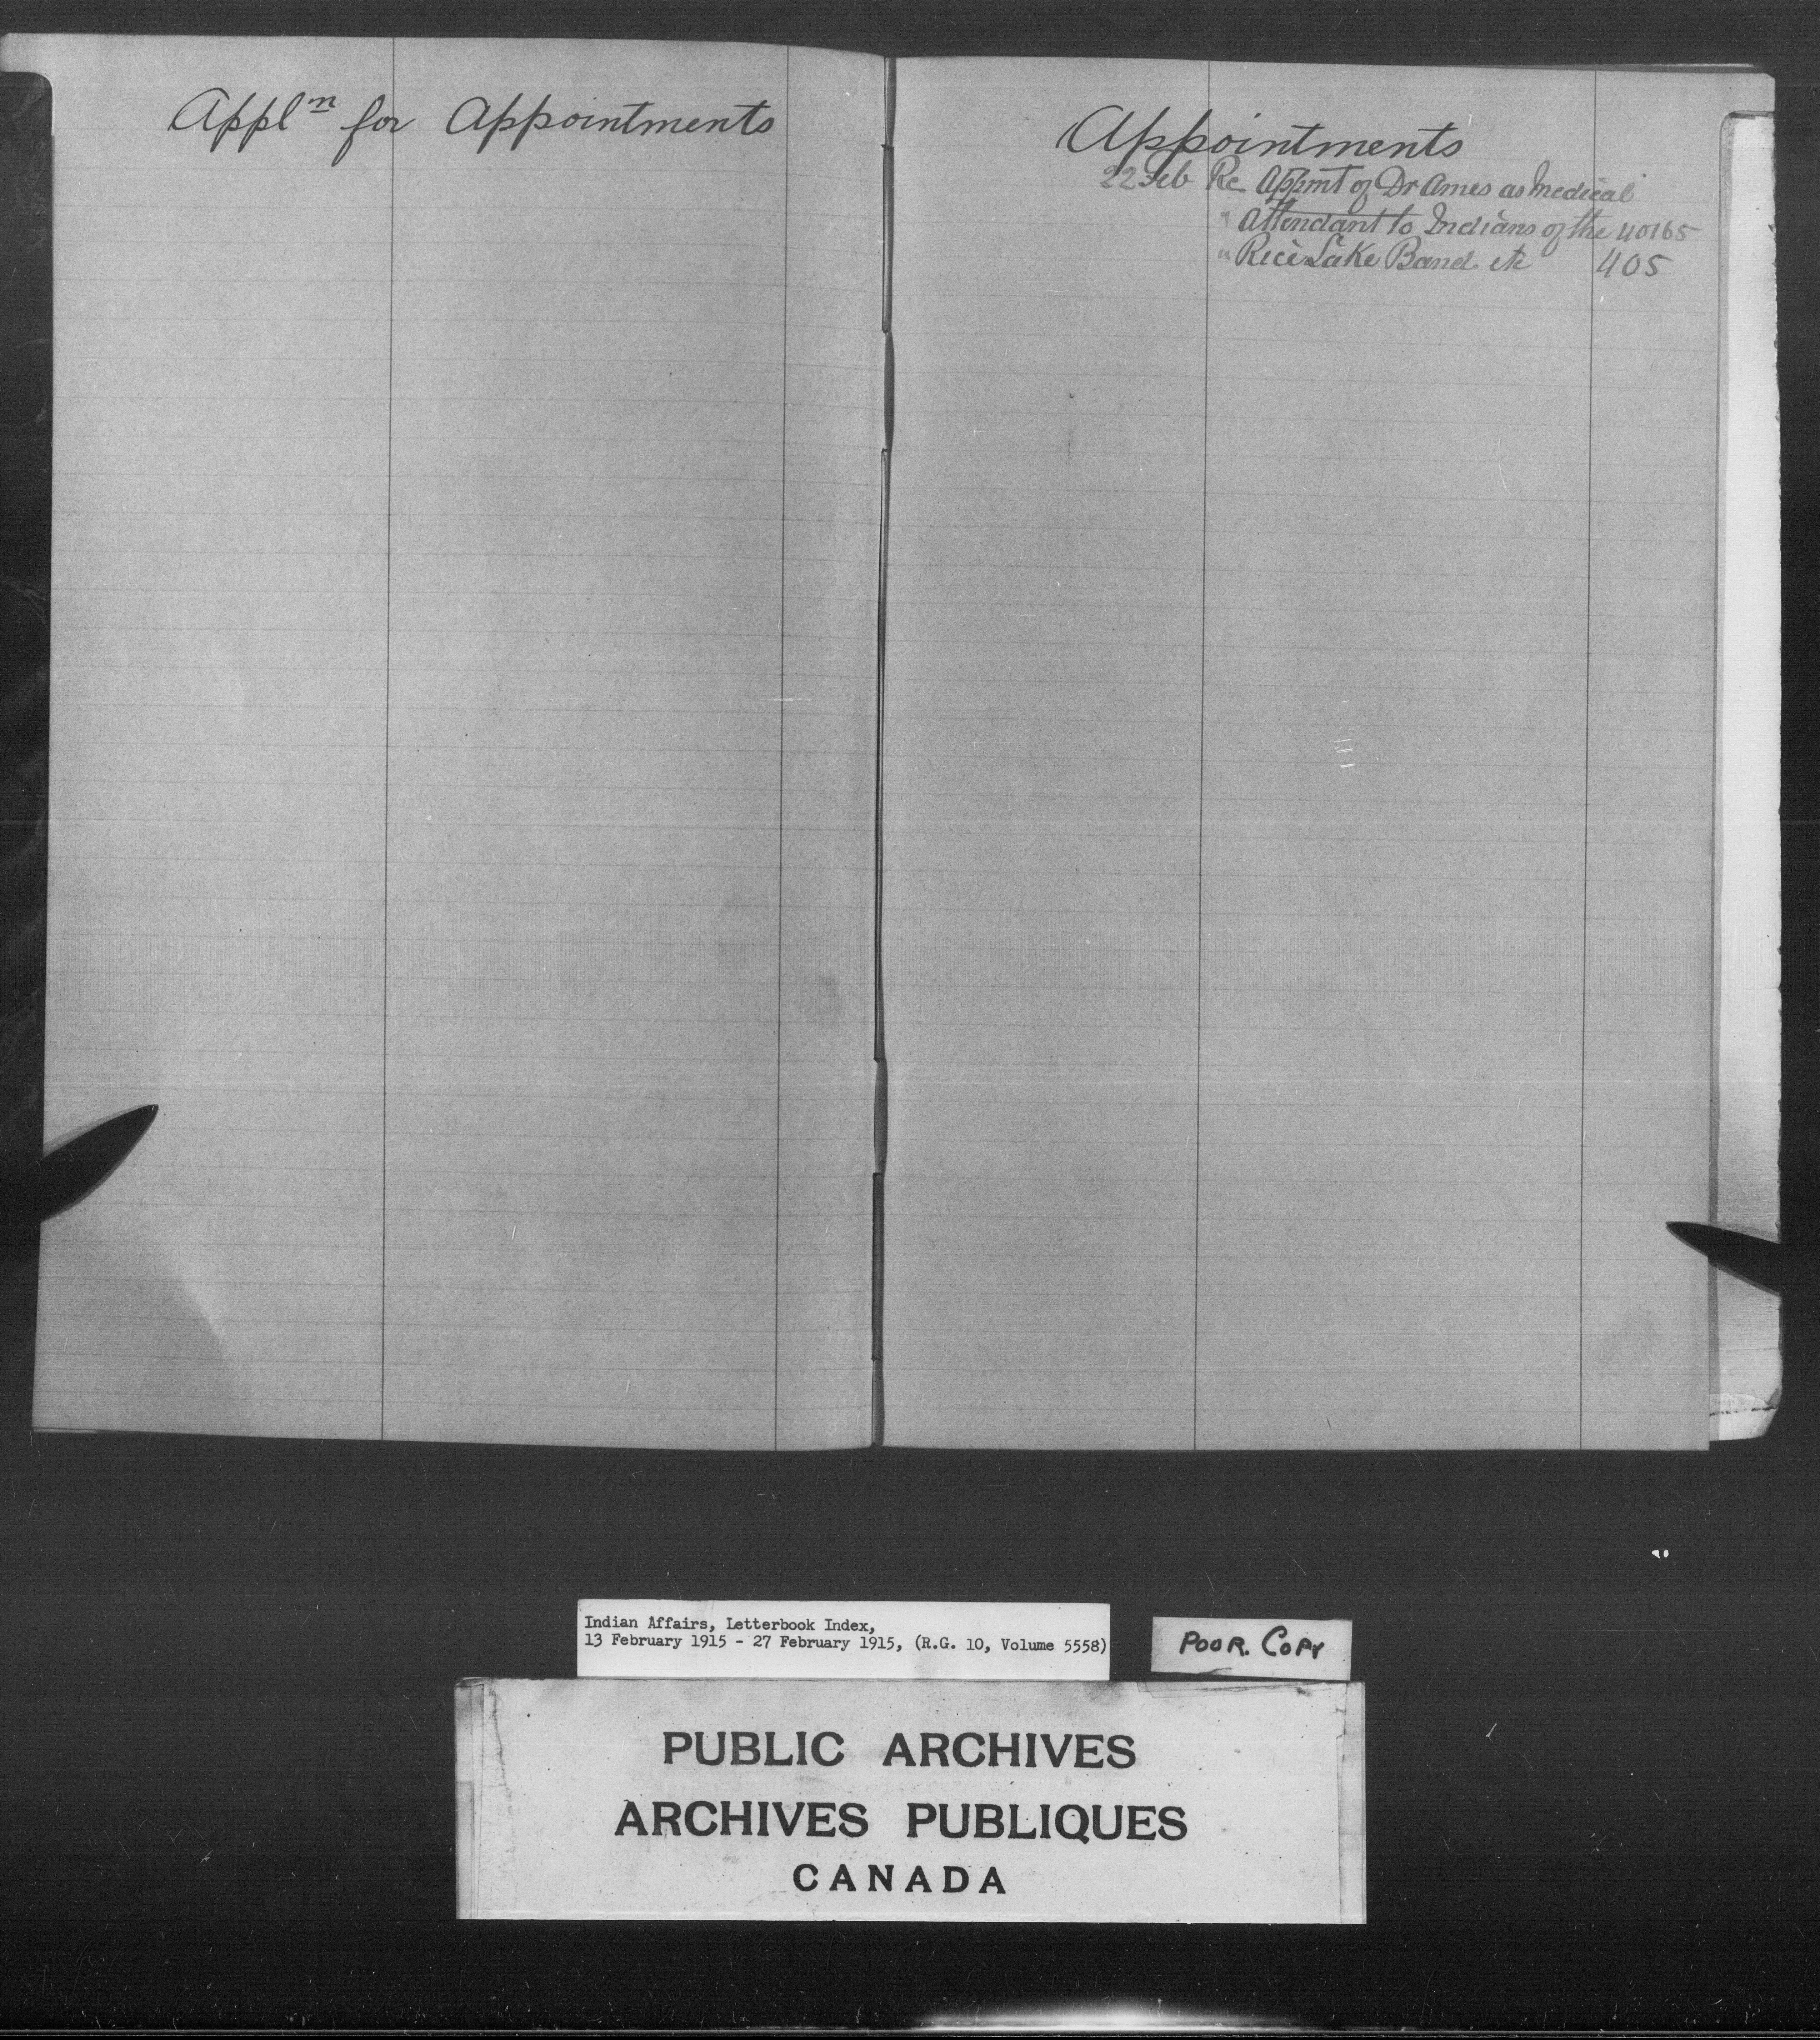 Appl<sup>n</sup> for Appointments
Appointments
22 Feb Re Appmt of Dr Ames as Medical
" Attendant to Indians of the 40165
" Rice Lake Band etc 405
Indian Affairs, Letterbook Index,
13 February 1915 - 27 February 1915, (R.G. 10, Volume 5558)
POOR. COPY
PUBLIC ARCHIVES
ARCHIVES PUBLIQUES
CANADA